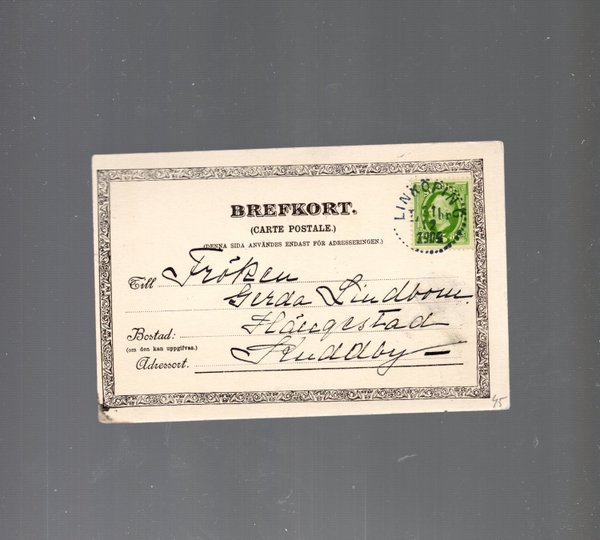 BREFKORT.
(CARTE POSTALE.)
(DENNA SIDA ANVÄNDES ENDAST FÖR ADRESSERINGEN.)
LINKÖPING
1904
Till Fröken
Gerda Lindbom.
Hängestad
Bostad:
(om den kan uppgifvas.)
Skuddby
Adressort.
45